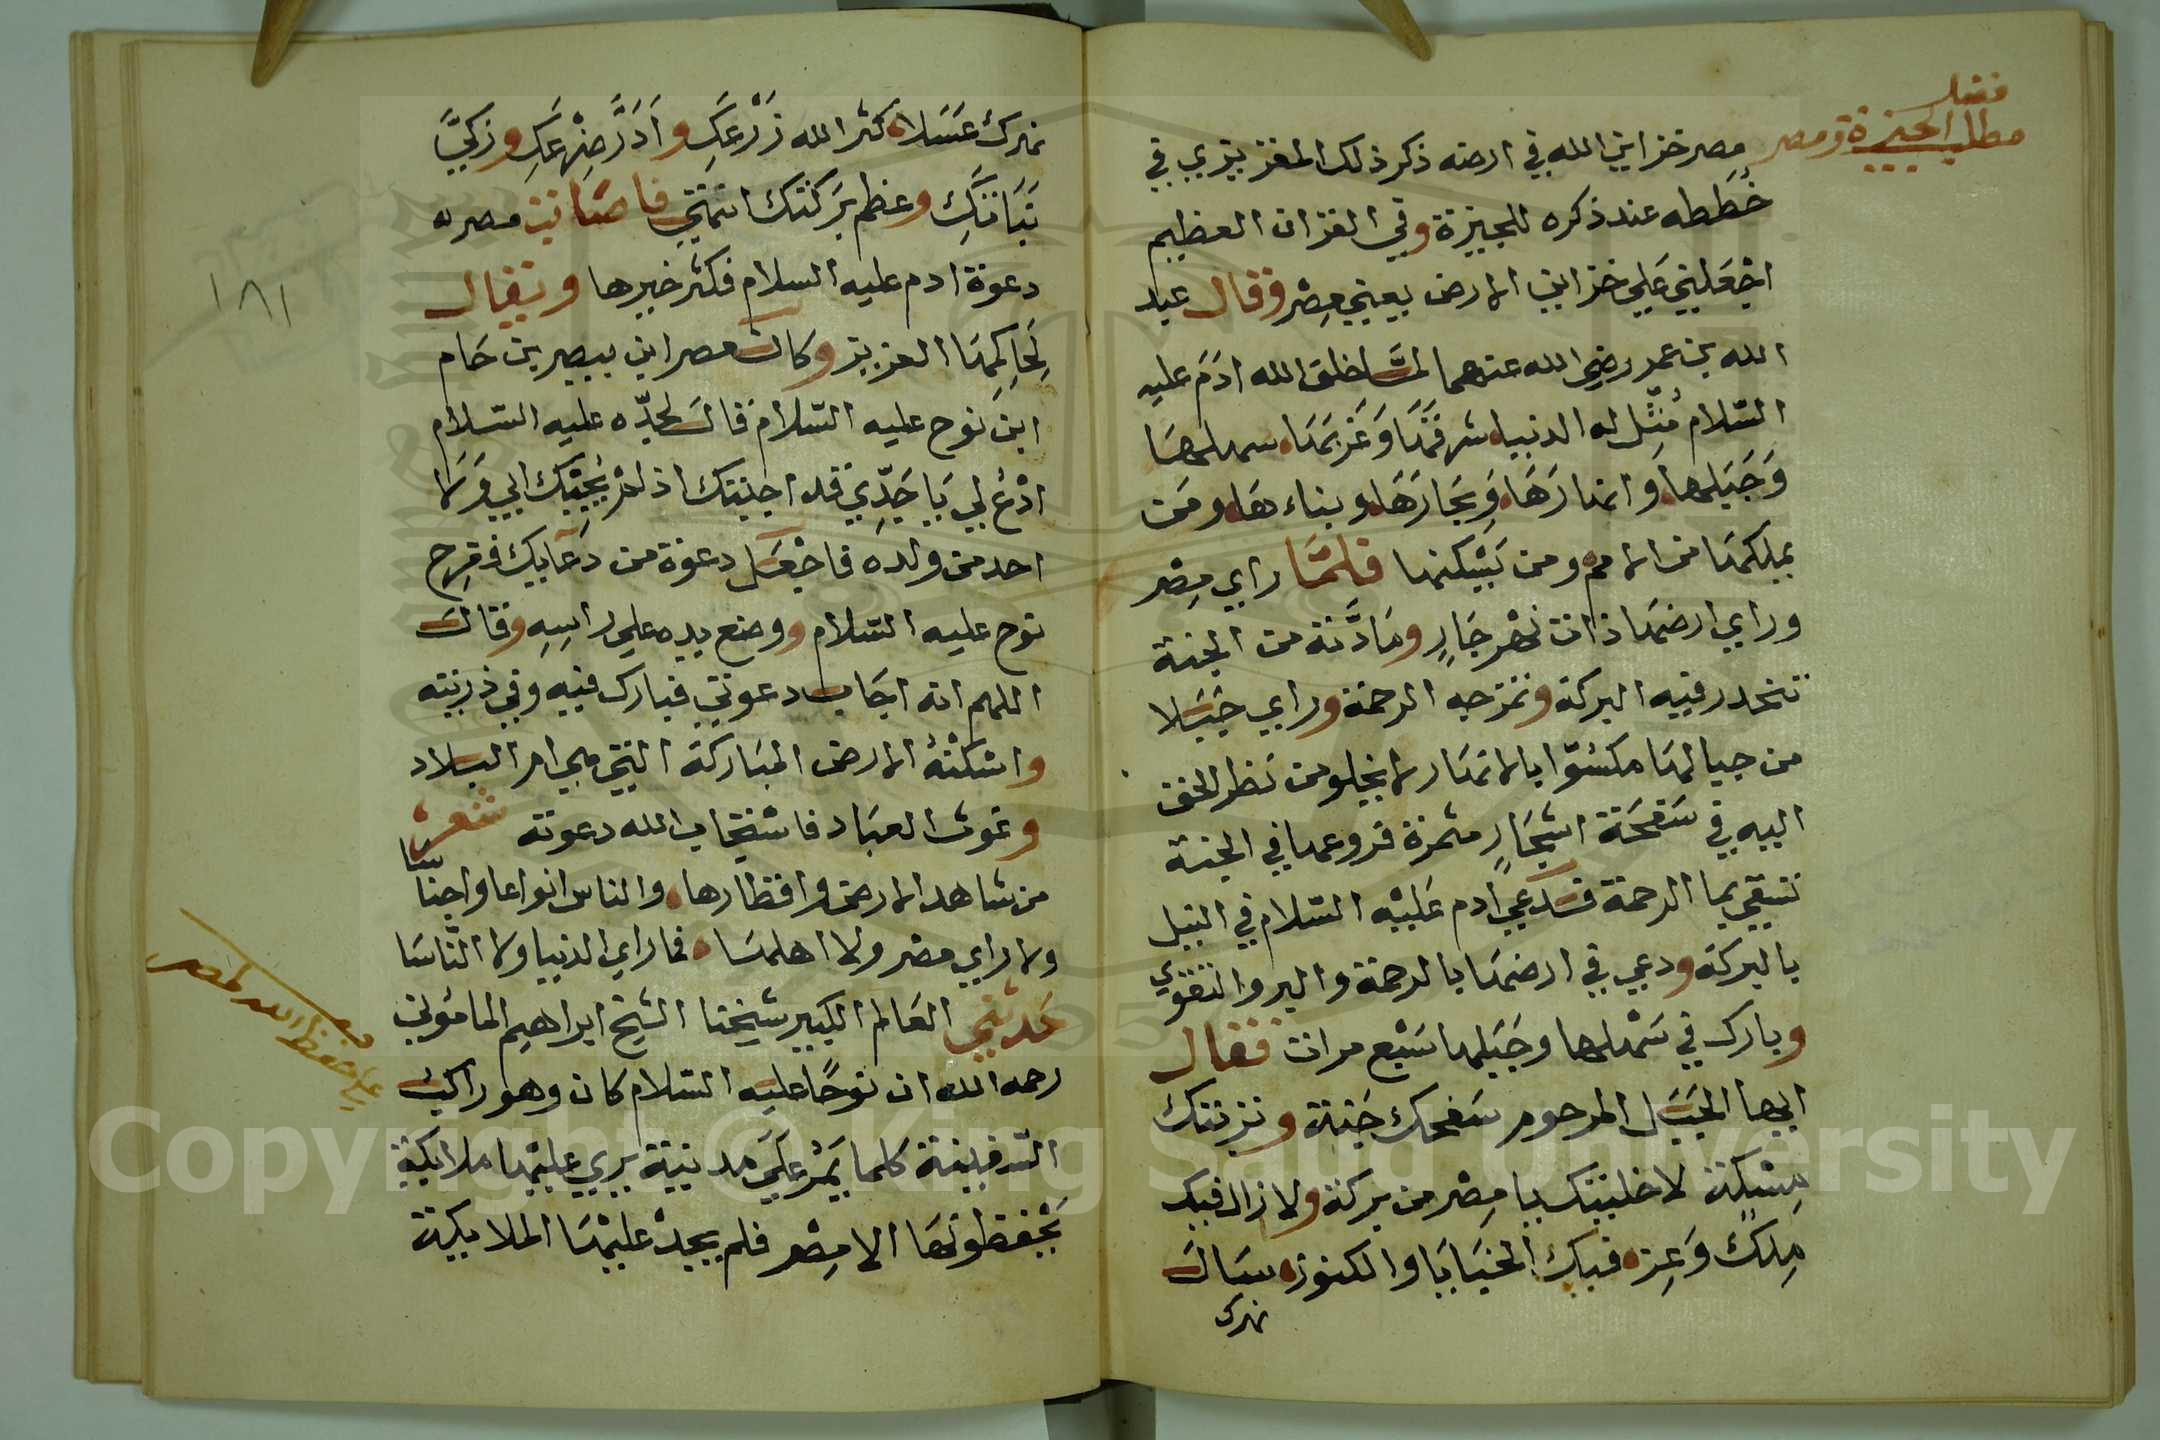 فضل
مطلب الجيزة ومصر
مصر خزاين الله في ارضه ذكر ذلك المقريزي في
خُطَطه عند ذكره للجيزة وفي القران العظيم
اجْعَلني عَلي خزاين الارض يعني مِصْر وقال عبد
الله بن عمر رضي الله عنهما لمّا خلق الله ادَم عليه
السّلام مُثِّل له الدنيا شرقهَا وَغربهَا سهلهَا
وَجَبَلها وانهارَهَا وَبحَارَهَا وبناءهَا ومَن
يملكهَا من الامم ومن يَسْكنها فلمّا راي مِصْر
وراي ارضهَا ذات نهْر جَارٍ ومَادَّته من الجنة
تنحدر فيه البركة وتمزجه الرحمة وراي جَبَلا
من جبالهَا مكسُوّا بالانهَار لا يخلو من نَظر الحق
اليه في سَفحَة اشجَارٍ مثمرة فروعها في الجنة
تسقي بما الرحمة فدَعي ادم عَليْه السّلام في النيل
بالبركة ودعي في ارضهَا بالرحمة والبر والتقوي
وبارك في سَهْلها وجَبَلها سَبْع مرات فقال
ايها الجَبَل المرحوم سَفحك جَنة وتربتك
مِسْكة لا خليتك يا مِصْر من بركة ولا زال فيك
مِلكٌ وَعِز فيك الخبَايَا والكنوز سَالَ
نهرك
نهرك عَسَلا كثر الله زَرْعَكِ وَاَدَرَّ ضِرْعَكِ وزكيَّ
نَبَاتَكِ وعظم بَركتك انتهي فاصَابت مصر
دعوة ادم عليه السلام فكثر خيرها ويقال
لحَاكِمهَا العزيز وكان مصر ابن بيصر بن حَام
ابن نوح عليه السّلام قالَ لجدّه عليه السّلام
ادْعُ لي يَا جَدِّي قد اجبتك اذ لم يُجِبْك ابي وَلا
احد من ولده فاجْعَل لي دعوة من دعَايك ففرح
نوح عليه السّلام ووضع يده علي راسِهِ وقالَ
اللهم انه اجَاب دعوتي فبارك فيه وفي ذريته
واسْكنْهُ الارض المبَاركة التي هي ام البلاد
وغوث العبَاد فاسْتجَاب الله دعوته شعر
من شاهد الارض واقطارها والناس انواعا واجناسا
ولا راي مصر ولا اهلهَا فما راي الدنيا ولا النَّاسَا
حَدثني العَالم الكبير شيخنا الشيخ ابراهيم المامُوني
رحمه الله ان نوحًا عليه السّلام كان وهو راكب
السّفينة كلما يَمُرّ عَلَي مدينة يري عليْها ملايكة
يَحْفظونهَا الا مِصْر فلم يجدْ عليْهَا الملايكة
١٨١
علي حفظ الله لمصر
Copyright © King Saud University